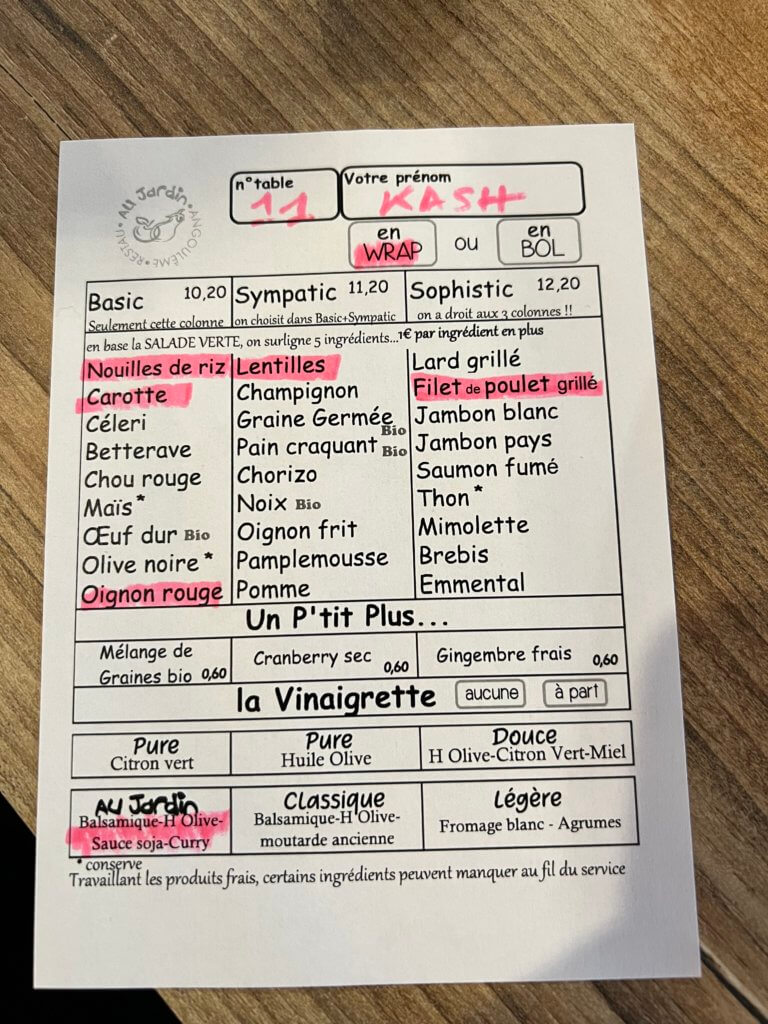 AU Jardin • ANGOULÊME • RESTAU •
n°table
11
Votre prénom
KASH
en WRAP ou en BOL
Basic 10,20 Sympatic 11,20 Sophistic 12,20
Seulement cette colonne on choisit dans Basic+Sympatic on a droit aux 3 colonnes !!
en base la SALADE VERTE, on surligne 5 ingrédients...1€ par ingrédient en plus
Nouilles de riz Lentilles Lard grillé
Carotte Champignon Filet de poulet grillé
Céleri Graine Germée Bio Jambon blanc
Betterave Pain craquant Bio Jambon pays
Chou rouge Chorizo Saumon fumé
Maïs * Noix Bio Thon *
Œuf dur Bio Oignon frit Mimolette
Olive noire * Pamplemousse Brebis
Oignon rouge Pomme Emmental
Un P'tit Plus...
Mélange de
Graines bio 0,60 Cranberry sec 0,60 Gingembre frais 0,60
la Vinaigrette aucune à part
Pure Pure Douce
Citron vert Huile Olive H Olive-Citron Vert-Miel
AU Jardin Classique Légère
Balsamique-H Olive- Balsamique-H Olive- Fromage blanc - Agrumes
Sauce soja-Curry moutarde ancienne
* conserve
Travaillant les produits frais, certains ingrédients peuvent manquer au fil du service